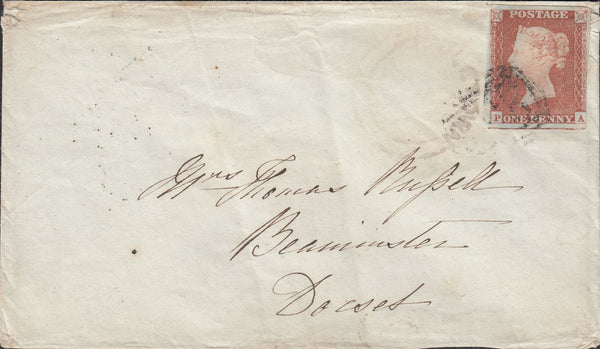 POSTAGE
P ONE PENNY A
Mrs Thomas Russell
Beaminster
Dorset